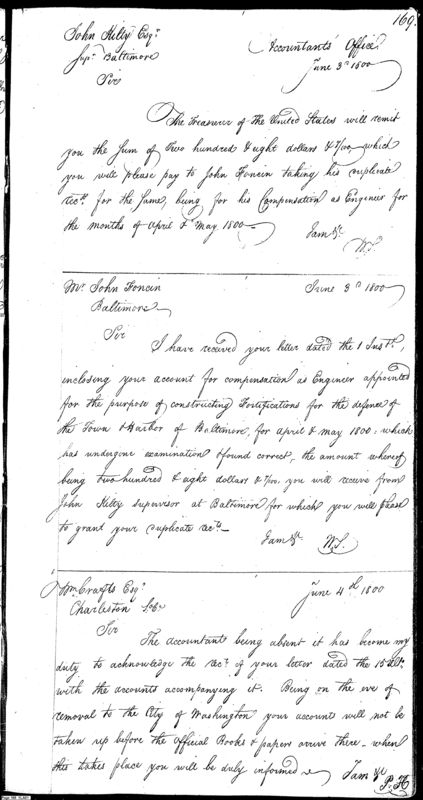 169.
John Kilty Esqr.
Supr. Baltimore
Accountants Office
June 3d 1800
Sir
The Treasurer of the United States will remit
you the Sum of Two hundred & eight dollars & 7/100, which
you will please pay to John Foncin taking his duplicate
recets. for the same, being for his Compensation as Engineer for
the months of April & May 1800
I am &c
W.S.
Mr. John Foncin
June 3d 1800
Baltimore
Sir
I have received your letter dated the 1 Inst.,
inclosing your account for compensation as Engineer appointed
for the purpose of constructing Fortifications for the defence of
the Town & Harbor of Baltimore, for april & may 1800: which
has undergone examination & found correct, the amount whereof
being two hundred & eight dollars & 7/100, you will receive from
John Kilty supervisor at Baltimore for which you will please
to grant your duplicate recets.
I am &c.
W.S.
Wm. Crafts Esqr.
June 4th 1800
Charleston So Ca
Sir
The Accountant being absent it has become my
duty to acknowledge the rect. of your letter dated the 15 Ulto.
with the accounts accompanying it. Being on the eve of
removal to the City of Washington your accounts will not be
taken up before the Official Books & papers arrive there - when
this takes place you will be duly informed
I am &c
P. H